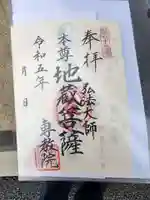 奉拝
弘法大師
本尊
地蔵菩薩
専教院
令和五年
月 日